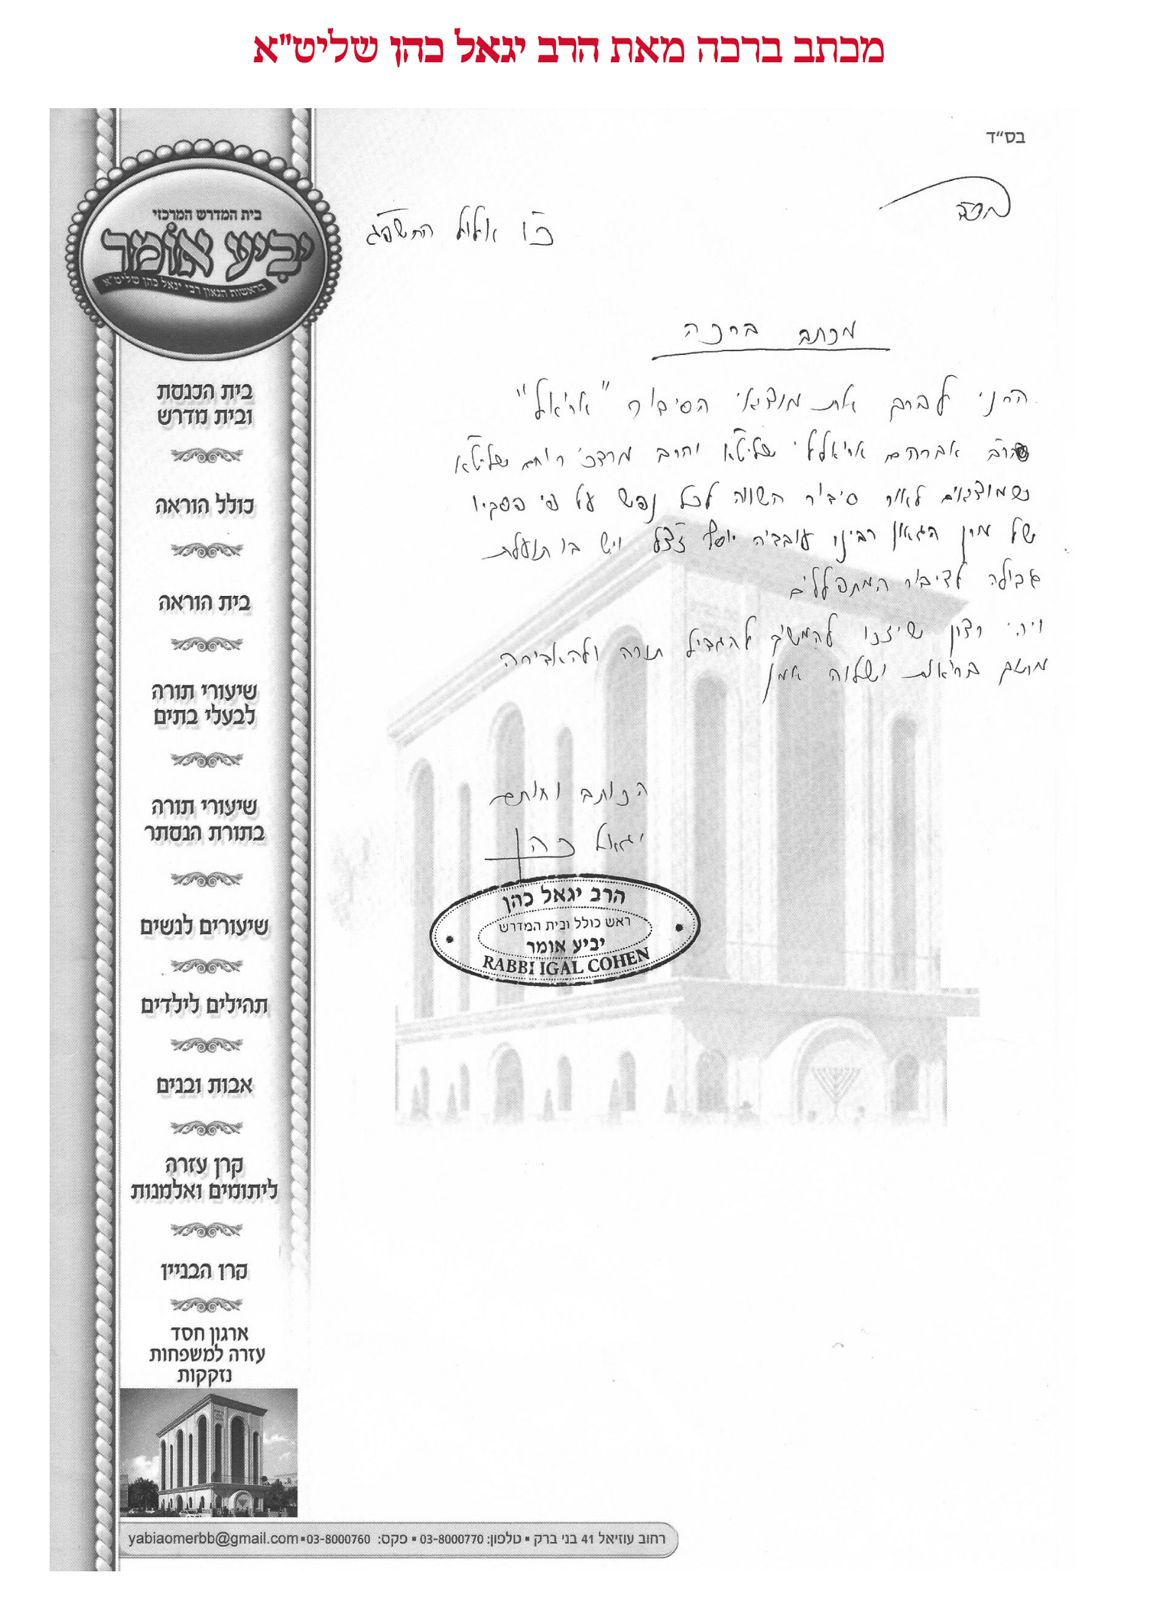 מכתב ברכה מאת הרב יגאל כהן שליט"א
בס"ד
כ"ו אלול התשפ"ג
מכתב ברכה
הרני לברך את מוציאי הסידור "אריאל"
הרב אברהם אריאלי שליט"א והרב מרדכי רוחם שליט"א
שמוציאים לאור סידור השווה לכל נפש על פי פסקיו
של מרן הגאון רבינו עובדיה יוסף זצ"ל ויש בו תועלת
גדולה לציבור המתפללים
ויהי רצון שיזכו להמשיך להגדיל תורה ולהאדירה
מתוך בריאות ושלוה אמן
הכותב וחותם
יגאל כהן
הרב יגאל כהן
ראש כולל ובית המדרש
יביע אומר
RABBI IGAL COHEN
בית המדרש המרכזי
יביע אומר
בראשות הגאון רבי יגאל כהן שליט"א
בית הכנסת
ובית מדרש
כולל הוראה
בית הוראה
שיעורי תורה
לבעלי בתים
שיעורי תורה
בתורת הנסתר
שיעורים לנשים
תהילים לילדים
אבות ובנים
קרן עזרה
ליתומים ואלמנות
קרן הבניין
ארגון חסד
עזרה למשפחות
נזקקות
רחוב עוזיאל 41 בני ברק ▪ טלפון: 03-8000770 ▪ פקס: 03-8000760 ▪ yabiaomerbb@gmail.com